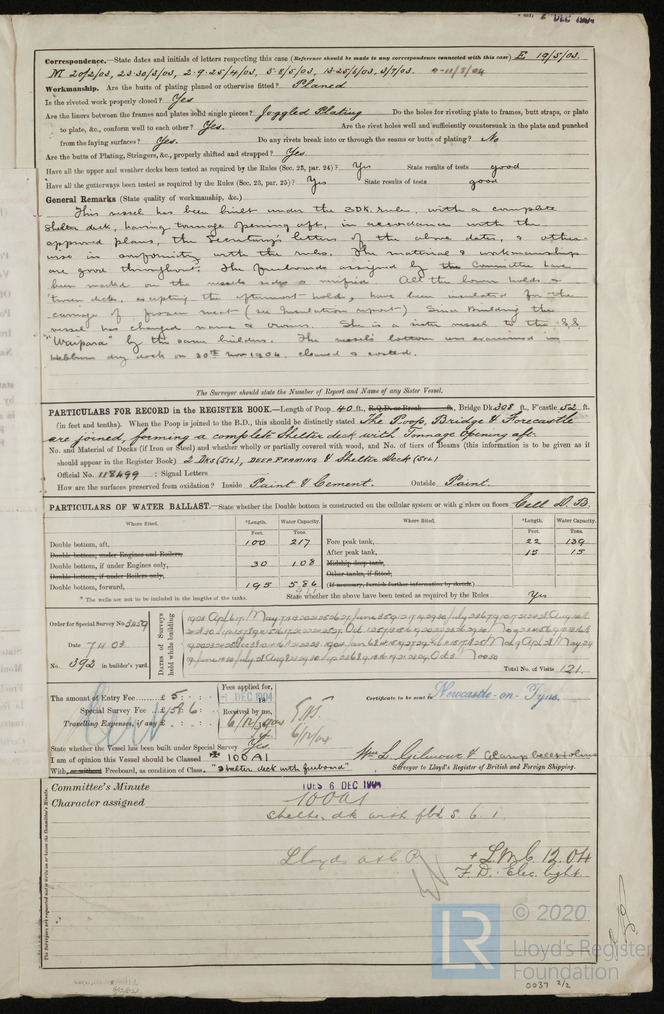 2 DEC 1904
Correspondence.—State dates and initials of letters respecting this case (Reference should be made to any correspondence connected with this case) E 19/5/03.
M 20/2/03, 23·30/3/03, 2·9·25/4/03, 5·8/5/03, 13·25/6/03, 3/7/03. 11/8/04
Workmanship. Are the butts of plating planed or otherwise fitted? Planed
Is the riveted work properly closed? Yes
Are the liners between the frames and plates solid single pieces? Joggled Plating Do the holes for riveting plate to frames, butt straps, or plate
to plate, &c., conform well to each other? Yes. Are the rivet holes well and sufficiently countersunk in the plate and punched
from the faying surfaces? Yes. Do any rivets break into or through the seams or butts of plating? No
Are the butts of Plating, Stringers, &c., properly shifted and strapped? Yes.
Have all the upper and weather decks been tested as required by the Rules (Sec. 23, par. 24)? Yes State results of tests good
Have all the gutterways been tested as required by the Rules (Sec. 23, par. 25)? Yes State results of tests good
General Remarks (State quality of workmanship, &c.)
This vessel has been built under the 3DK. rules, with a complete
Shelter deck, having tonnage opening aft, in accordance with the
approved plans, the Secretary's letters of the above dates, & other-
wise in conformity with the rules. The material & workmanship
are good throughout. The freeboards assigned by the Committee have
been marked on the vessels sides & verified. All the lower holds &
'tween decks, excepting the aftermost hold, have been insulated for the
carriage of frozen meat (see Insulation report) Since building the
vessel has changed name & owners. She is a sister vessel to the S.S.
"Waipara" by the same builders. The vessel's bottom was examined in
Hebburn dry dock on 30th Nov 1904. cleaned & coated.
The Surveyor should state the Number of Report and Name of any Sister Vessel.
PARTICULARS FOR RECORD in the REGISTER BOOK.—Length of Poop 40 ft., R.Q.D. or Break ft., Bridge Dk 308 ft., F'castle 52 ft.
(in feet and tenths). When the Poop is joined to the B.D., this should be distinctly stated The Poop, Bridge & Forecastle
are joined, forming a complete Shelter deck with Tonnage Opening aft.
No. and Material of Decks (if Iron or Steel) and whether wholly or partially covered with wood, and No. of tiers of Beams (this information is to be given as it
should appear in the Register Book) 2 Dks (Stl), Deep Framing & Shelter Deck (Stl)
Official No. 118499 : Signal Letters
How are the surfaces preserved from oxidation? Inside Paint & Cement. Outside Paint
PARTICULARS OF WATER BALLAST.—State whether the Double bottom is constructed on the cellular system or with girders on floors Cell D. B.
Where fitted. *Length. Water Capacity. Where fitted. *Length. Water Capacity.
Feet. Tons. Feet. Tons.
Double bottom, aft, 100 217 Fore peak tank, 22 139
Double bottom, under Engines and Boilers, After peak tank, 15 15
Double bottom, if under Engines only, 30 108 Midship deep tank,
Double bottom, if under Boilers only, Other tanks, if fitted,
Double bottom, forward, 195 586 (If necessary, furnish further information by sketch)
911
* The wells are not to be included in the lengths of the tanks. State whether the above have been tested as required by the Rules Yes
Order for Special Survey No. 3459
Date 7 4 03
No. 392 in builder's yard.
DATES of Surveys held while building
Total No. of Visits 121.
The amount of Entry Fee £ 5 : :
Special Survey Fee £ 158 6 :
Travelling Expenses, if any £ : :
Fees applied for,
DEC 1904
Received by me,
6/12/04
6/12/04
Certificate to be sent to Newcastle-on-Tyne.
State whether the Vessel has been built under Special Survey Yes.
I am of opinion this Vessel should be Classed ✠ 100A1
With or without Freeboard, as condition of Class. "Shelter deck with freeboard"
Wm L. Gilmour & Campbell Holms
Surveyor to Lloyd's Register of British and Foreign Shipping.
Committee's Minute TUES 6 DEC 1904
Character assigned 100A1
Shelter dk with fbd 5. 6. 1
Lloyds A & C P
+ L.M.C. 12.04
F.D. Elec. light.
The Surveyors are requested not to write on or below the Committee's Minute.
LR
© 2020
Lloyd's Register
Foundation
0037 2/2